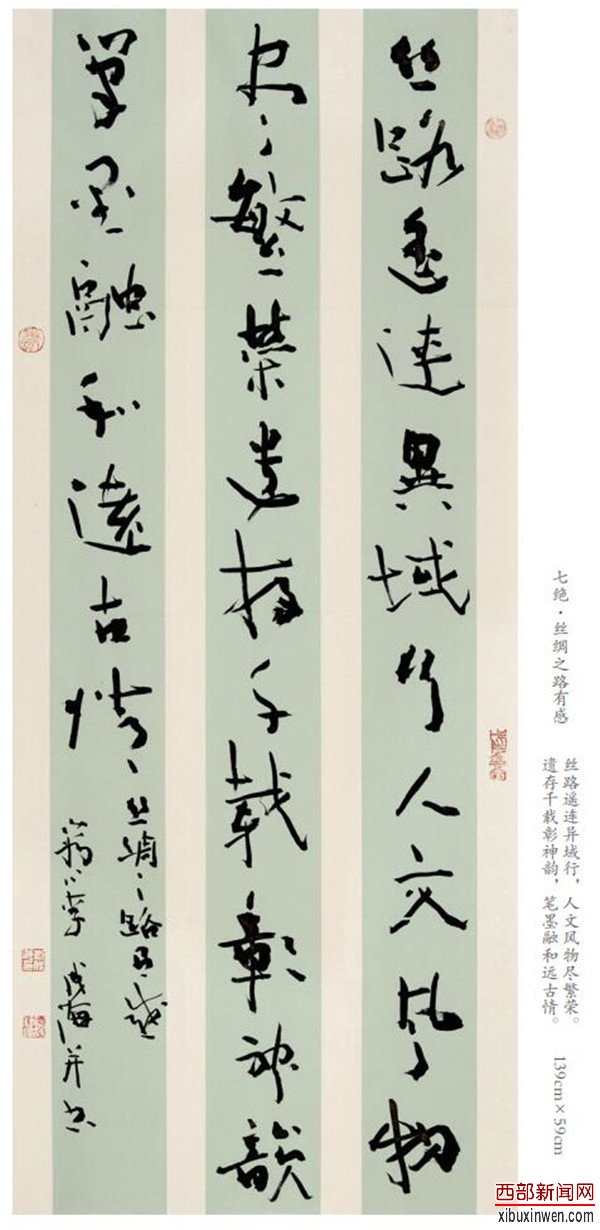 丝路遥連異域行人文風物
尽繁榮遺存千載彰神韻
筆墨融和遠古情
丝绸之路有感
并书
七绝·丝绸之路有感
丝路遥连异域行，人文风物尽繁荣。
遗存千载彰神韵，笔墨融和远古情。
139cm×59cm
西部新闻网
xibuxinwen.com